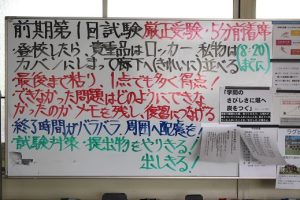 前期第1回試験 厳正受験・5分前着席
登校したら、貴重品はロッカー、私物は(8:20)
カバンにしまって廊下へ(きれいに)並べる(までに)
最後まで粘り、1点でも多く得点!
できなかった問題はどのようにできな
かったのかメモを残し、復習につなげる
終了時間がバラバラ、周囲へ配慮を!
試験対策・提出物をやりきる!
出しきる!
「学問の
さびしさに堪へ
炭をつぐ」